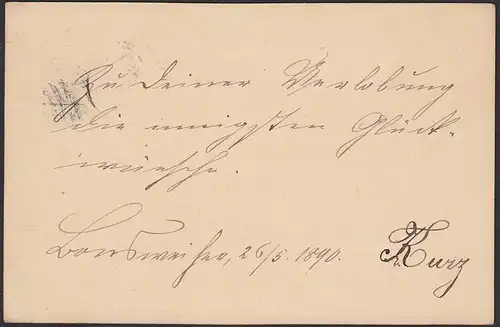 Zu Deiner Verlobung
die innigsten Glück-
wünsche.
Bonsweiher, 26/5. 1890. Kurz